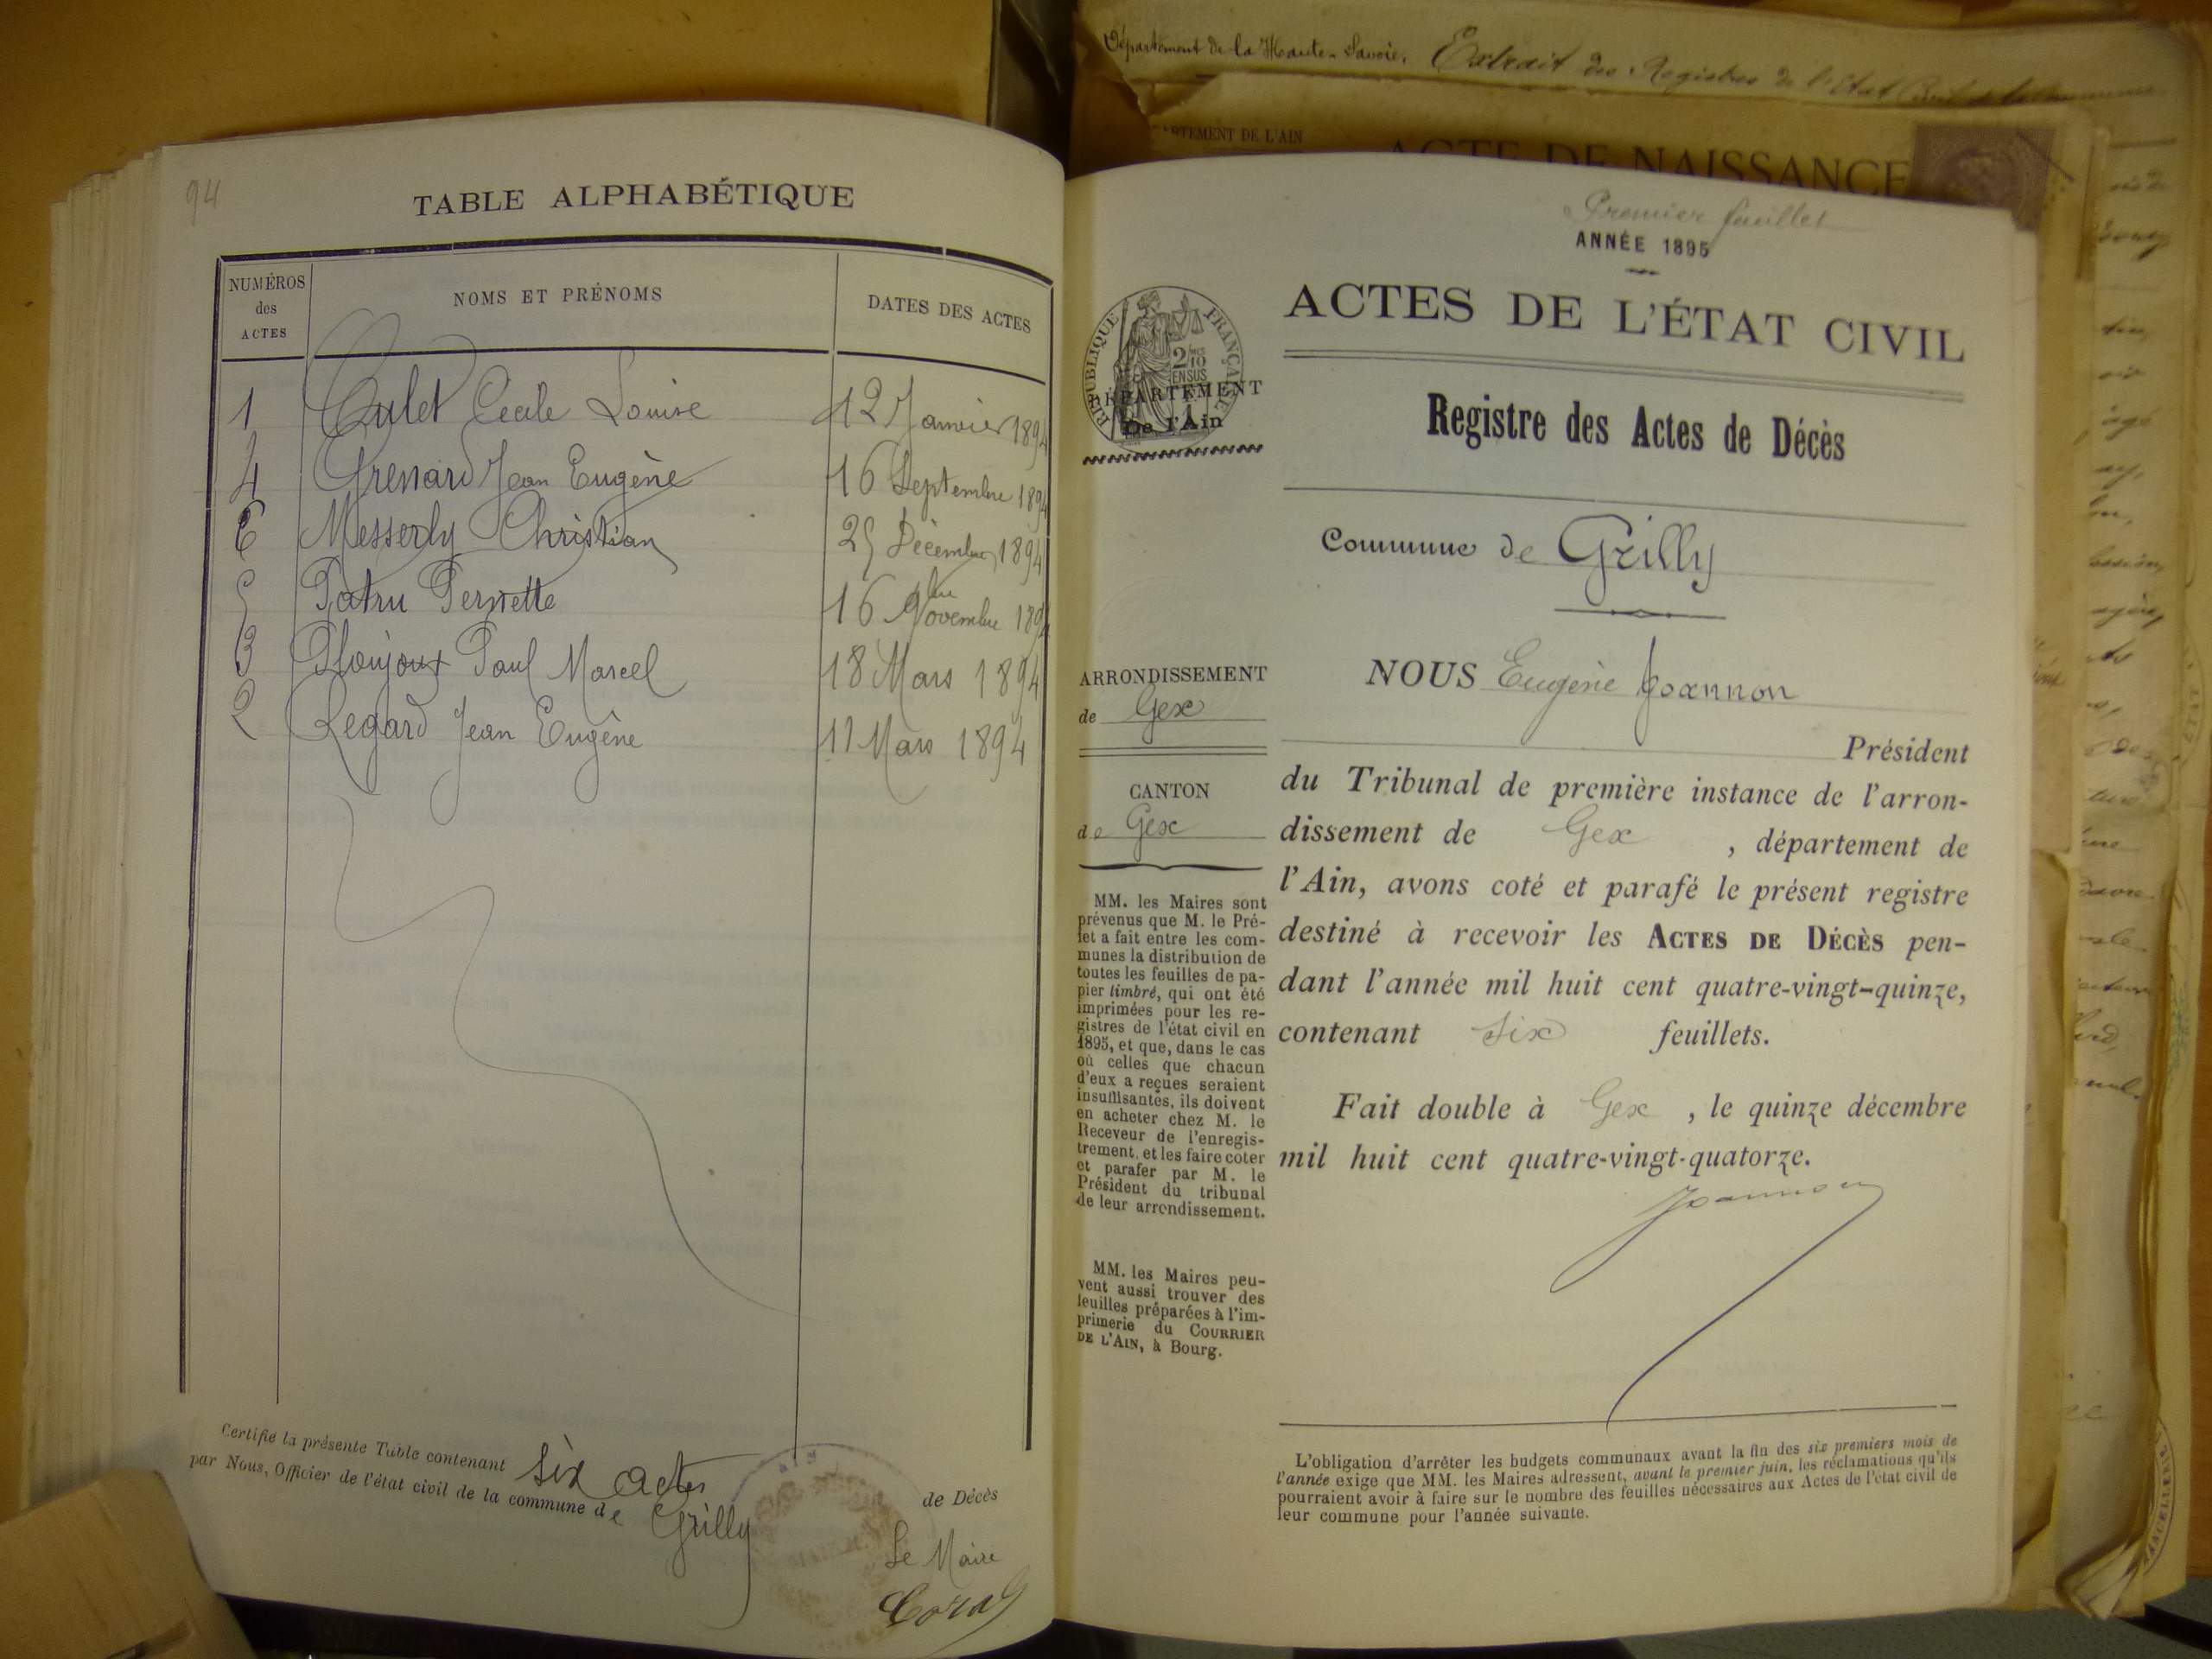 94
TABLE ALPHABÉTIQUE
NUMÉROS des ACTES NOMS ET PRÉNOMS DATES DES ACTES
1 Culet Cecile Louise 12 Janvier 1894
4 Grenard Jean Eugène 16 Septembre 1894
6 Messerly Christian 25 Décembre 1894
5 Patru Pernette 16 Novembre 1894
3 Ploujoux Paul Marcel 18 Mars 1894
2 Regard Jean Eugène 11 Mars 1894
Certifié la présente Table contenant six actes de Décès
par Nous, Officier de l'état civil de la commune de Grilly
Le Maire
Département de la Haute-Savoie. Extrait des Registres de l'Etat Civil de la Commune
DÉPARTEMENT DE L'AIN
ACTE DE NAISSANCE
Premier feuillet
ANNÉE 1895
ACTES DE L'ÉTAT CIVIL
RÉPUBLIQUE FRANÇAISE
DÉPARTEMENT
De l'Ain
Registre des Actes de Décès
Commune de Grilly
ARRONDISSEMENT
de Gex
CANTON
de Gex
MM. les Maires sont
prévenus que M. le Pré-
fet a fait entre les com-
munes la distribution de
toutes les feuilles de pa-
pier timbré, qui ont été
imprimées pour les re-
gistres de l'état civil en
1895, et que, dans le cas
où celles que chacun
d'eux a reçues seraient
insuffisantes, ils doivent
en acheter chez M. le
Receveur de l'enregis-
trement, et les faire coter
et parafer par M. le
Président du tribunal
de leur arrondissement.
MM. les Maires peu-
vent aussi trouver des
feuilles préparées à l'im-
primerie du COURRIER
DE L'AIN, à Bourg.
NOUS Eugène Joannon
Président
du Tribunal de première instance de l'arron-
dissement de Gex , département de
l'Ain, avons coté et parafé le présent registre
destiné à recevoir les ACTES DE DÉCÈS pen-
dant l'année mil huit cent quatre-vingt-quinze,
contenant six feuillets.
Fait double à Gex , le quinze décembre
mil huit cent quatre-vingt-quatorze.
Joannon
L'obligation d'arrêter les budgets communaux avant la fin des six premiers mois de
l'année exige que MM. les Maires adressent, avant le premier juin, les réclamations qu'ils
pourraient avoir à faire sur le nombre des feuilles nécessaires aux Actes de l'état civil de
leur commune pour l'année suivante.